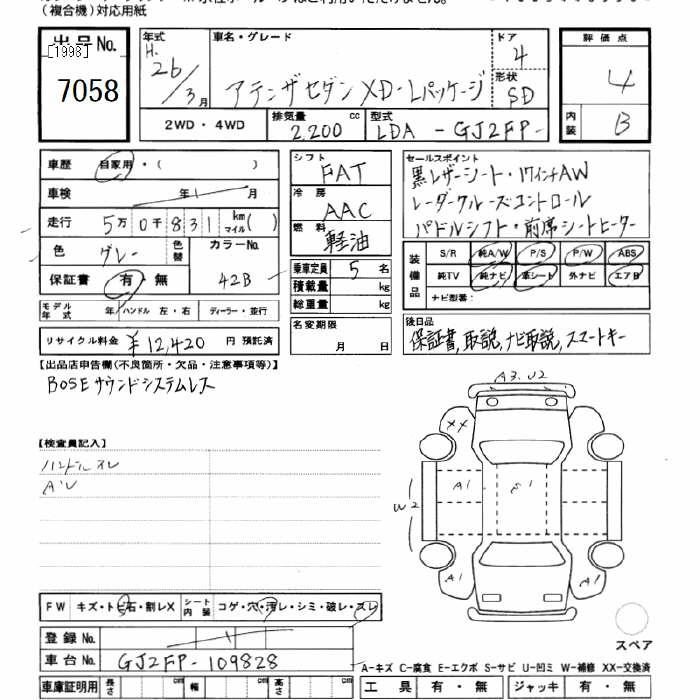 （複合機）対応用紙
出品No.
[1998]
7058
年式
H.
26/3月
車名・グレード
アテンザセダン XD-Lパッケージ
ドア
4
形状
SD
評価点
4
内装
B
2WD・4WD
排気量
2,200 cc
型式
LDA - GJ2FP-
車歴 自家用・( )
車検 年 月
走行 5万0千831 km マイル( )
色 グレー 色替
カラーNo. 42B
保証書 有・無
モデル年式 年 ハンドル 左・右 ディーラー・並行
リサイクル料金 ¥12,420 円 預託済
シフト
FAT
冷房
AAC
燃料
軽油
乗車定員 5 名
積載量 kg
総重量 kg
名変期限
月 日
セールスポイント
黒レザーシート・17インチAW
レーダークルーズコントロール
パドルシフト・前席シートヒーター
装備品
S/R 純A/W P/S P/W ABS
純TV 純ナビ 革シート 外ナビ エアB
ナビ型番:
後日品
保証書,取説,ナビ取説,スマートキー
【出品店申告欄(不良箇所・欠品・注意事項等)】
BOSEサウンドシステムレス
【検査員記入】
ハンドルスレ
A3.U2
XX
A1
E1
W2
A1
A1
スペア
FW キズ・トビ石・割レX
シート内装 コゲ・穴・汚レ・シミ・破レ・スレ
登録No.
車台No. GJ2FP-109828
A-キズ C-腐食 E-エクボ S-サビ U-凹ミ W-補修 XX-交換済
車庫証明用 長さ cm 幅 cm 高さ cm
工具 有・無 ジャッキ 有・無